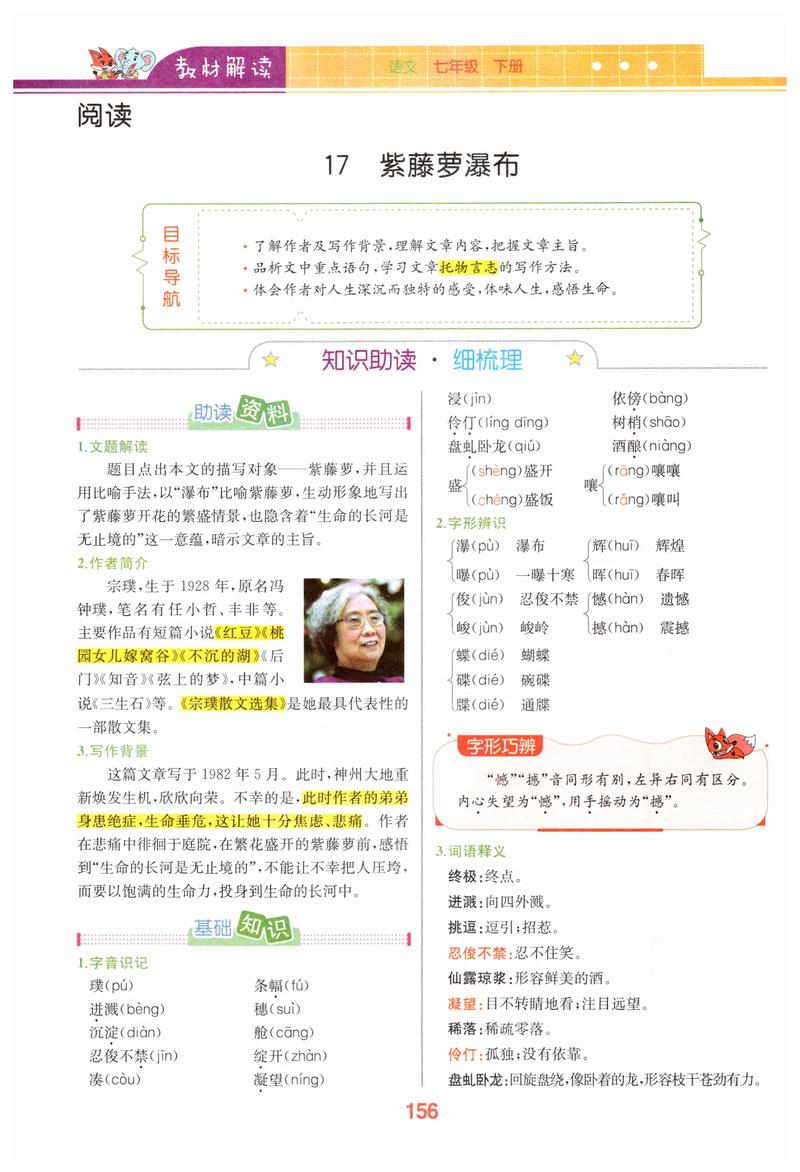 教材解读
语文 七年级 下册
阅读
17 紫藤萝瀑布
目标导航
·了解作者及写作背景,理解文章内容,把握文章主旨。
·品析文中重点语句,学习文章托物言志的写作方法。
·体会作者对人生深沉而独特的感受,体味人生,感悟生命。
知识助读·细梳理
助读资料
1.文题解读
题目点出本文的描写对象——紫藤萝,并且运
用比喻手法,以“瀑布”比喻紫藤萝,生动形象地写出
了紫藤萝开花的繁盛情景,也隐含着“生命的长河是
无止境的”这一意蕴,暗示文章的主旨。
2.作者简介
宗璞,生于 1928 年,原名冯
钟璞,笔名有任小哲、丰非等。
主要作品有短篇小说《红豆》《桃
园女儿嫁窝谷》《不沉的湖》《后
门》《知音》《弦上的梦》,中篇小
说《三生石》等。《宗璞散文选集》是她最具代表性的
一部散文集。
3.写作背景
这篇文章写于 1982 年 5 月。此时,神州大地重
新焕发生机,欣欣向荣。不幸的是,此时作者的弟弟
身患绝症,生命垂危,这让她十分焦虑、悲痛。作者
在悲痛中徘徊于庭院,在繁花盛开的紫藤萝前,感悟
到“生命的长河是无止境的”,不能让不幸把人压垮,
而要以饱满的生命力,投身到生命的长河中。
基础知识
1.字音识记
璞(pú) 条幅(fú)
迸溅(bèng) 穗(suì)
沉淀(diàn) 舱(cāng)
忍俊不禁(jīn) 绽开(zhàn)
凑(còu) 凝望(níng)
浸(jìn) 依傍(bàng)
伶仃(líng dīng) 树梢(shāo)
盘虬卧龙(qiú) 酒酿(niàng)
盛 (shèng)盛开 (chéng)盛饭
嚷 (rāng)嚷嚷 (rǎng)嚷叫
2.字形辨识
瀑(pù) 瀑布 辉(huī) 辉煌
曝(pù) 一曝十寒 晖(huī) 春晖
俊(jùn) 忍俊不禁 憾(hàn) 遗憾
峻(jùn) 峻岭 撼(hàn) 震撼
蝶(dié) 蝴蝶
碟(dié) 碗碟
牒(dié) 通牒
字形巧辨
“憾”“撼”音同形有别,左异右同有区分。
内心失望为“憾”,用手摇动为“撼”。
3.词语释义
终极:终点。
迸溅:向四外溅。
挑逗:逗引;招惹。
忍俊不禁:忍不住笑。
仙露琼浆:形容鲜美的酒。
凝望:目不转睛地看;注目远望。
稀落:稀疏零落。
伶仃:孤独;没有依靠。
盘虬卧龙:回旋盘绕,像卧着的龙,形容枝干苍劲有力。
156